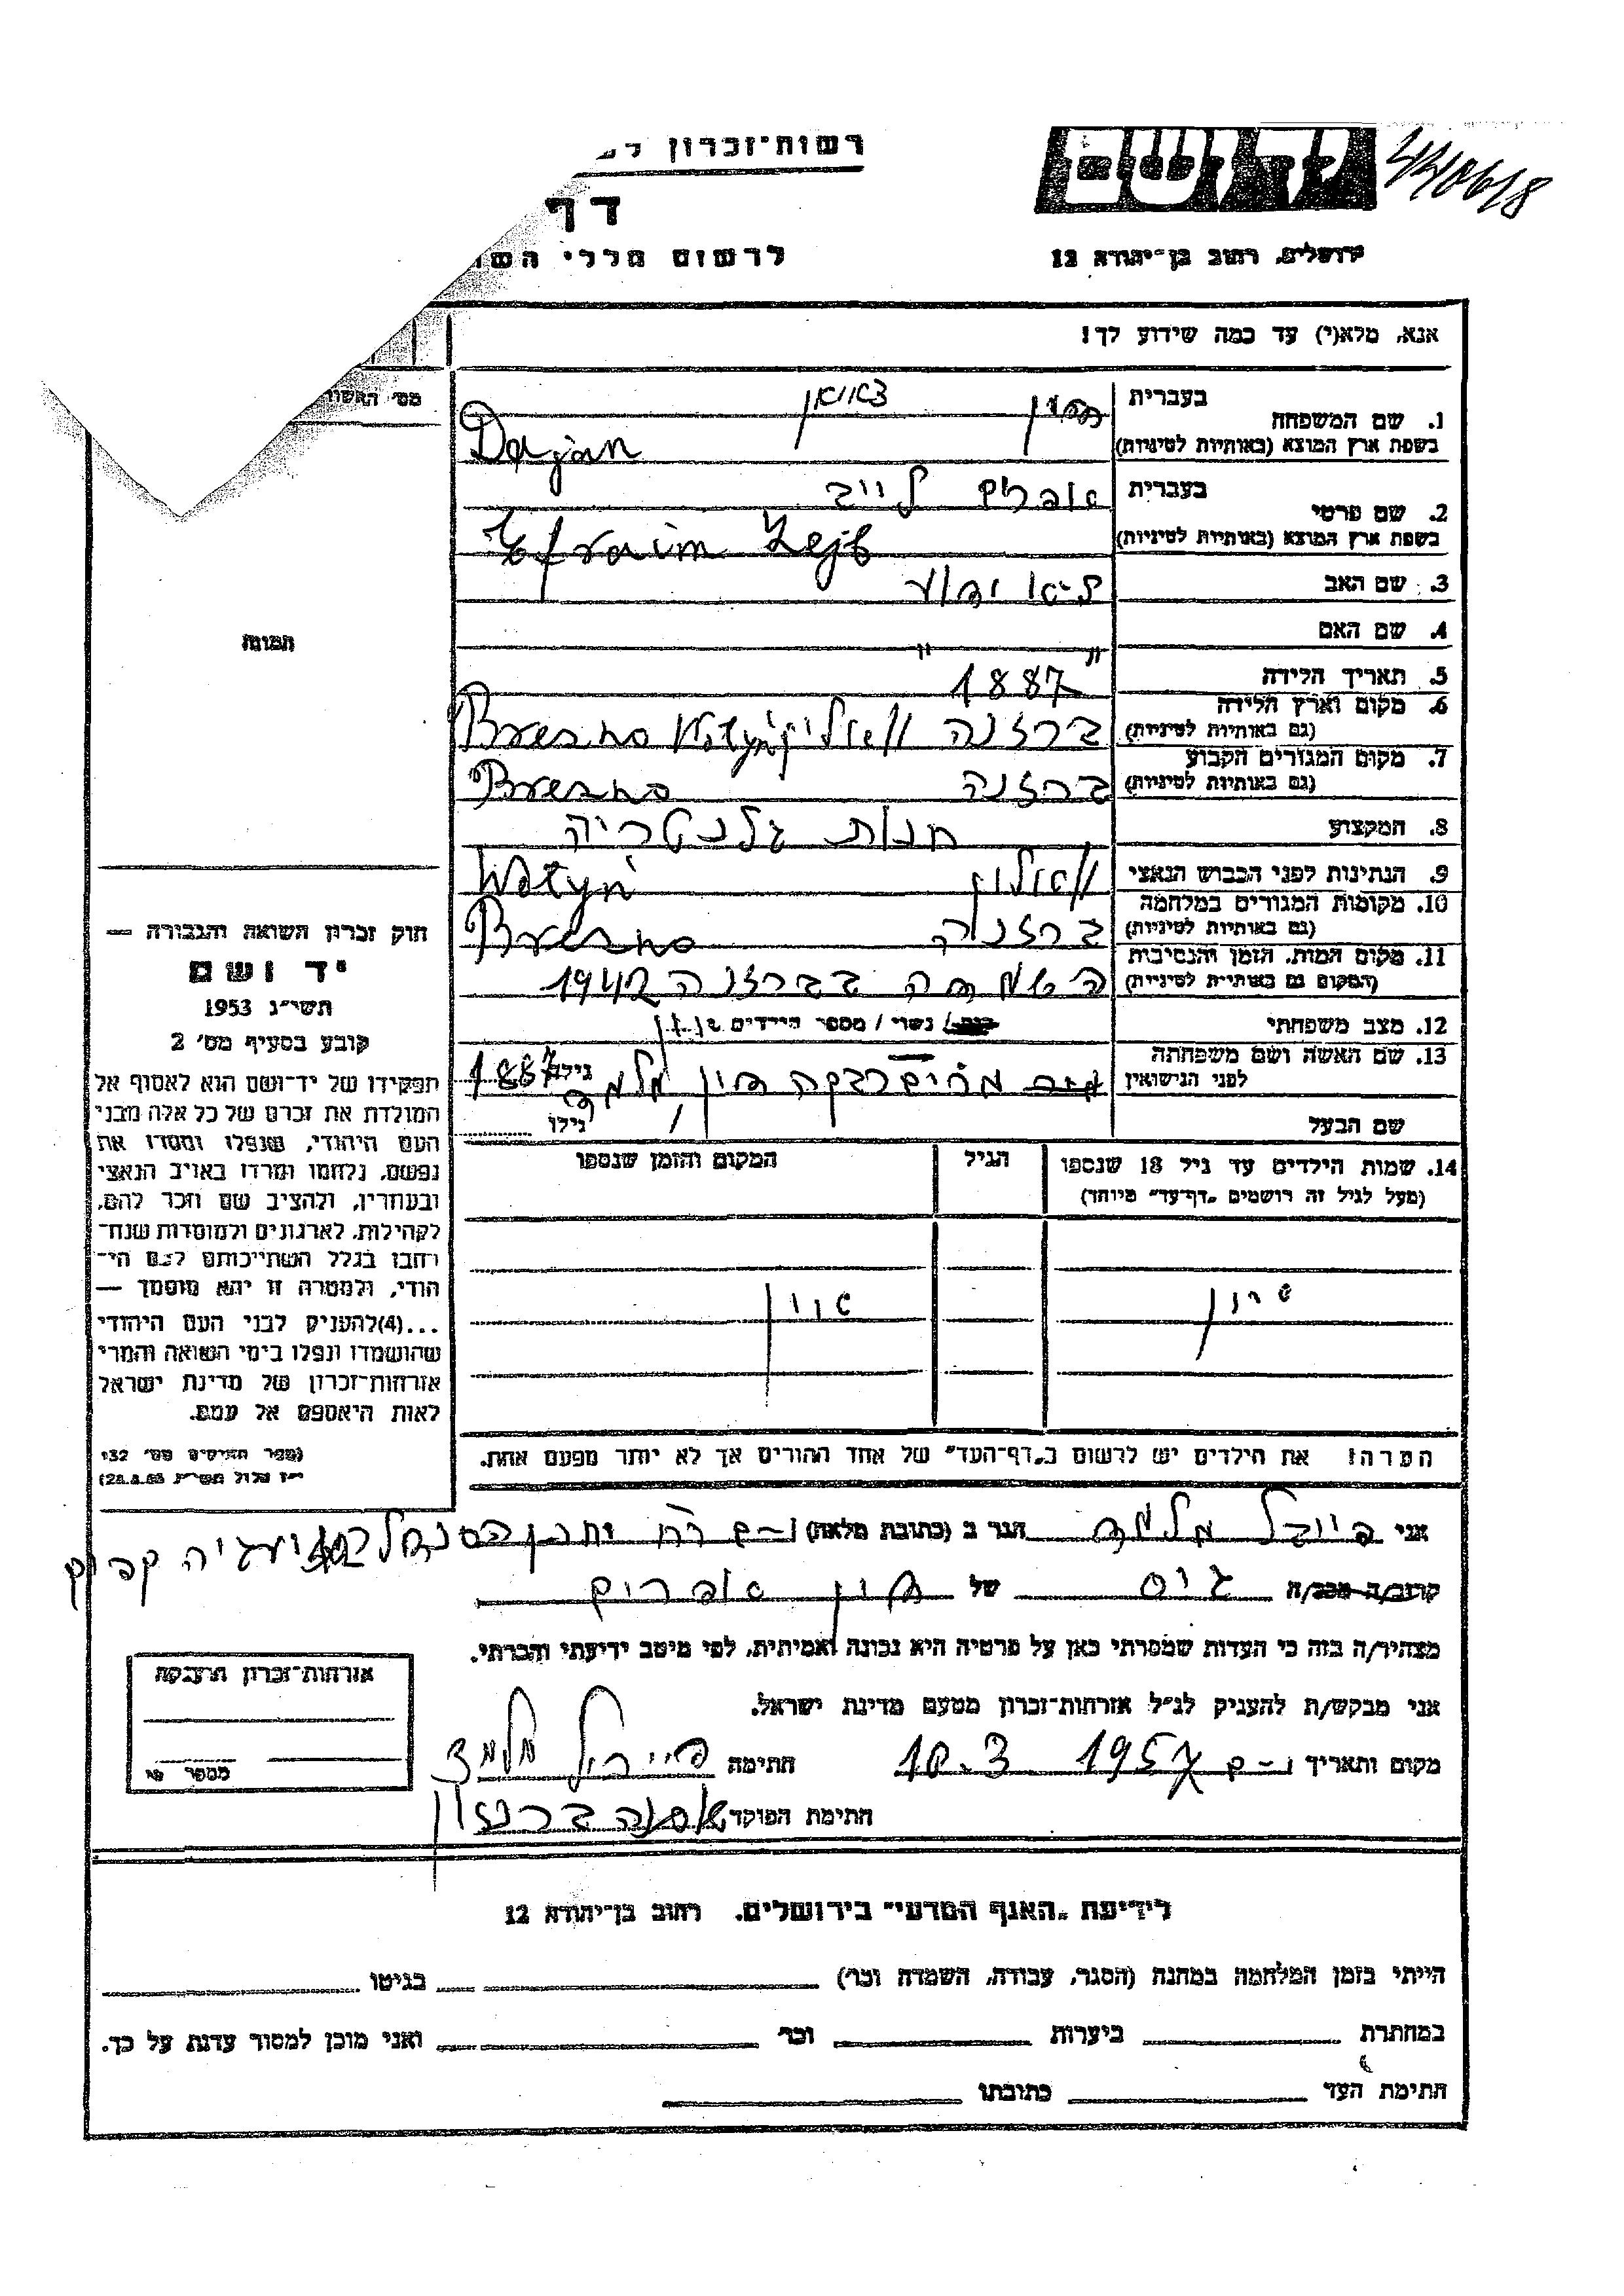 רשות־זכרון
דף
ידושם
לרשום חללי
ירושלים, רחוב בן־יהודה 12
אנא, מלא(י) עד כמה שידוע לך!
מס׳ האשור
1. שם המשפחה
בעברית
בשפת ארץ המוצא (באותיות לטיניות)
Dajan
2. שם פרטי
בעברית אפרים לייב
בשפת ארץ המוצא (באותיות לטיניות) Efraim Lejb
3. שם האב
4. שם האם " "
5. תאריך הלידה 1887
6. מקום וארץ הלידה
(גם באותיות לטיניות) ברזנה וואלין Brezno Wołyń
7. מקום המגורים הקבוע
(גם באותיות לטיניות) ברזנה Brezno
8. המקצוע חנות גלנטריה
9. הנתינות לפני הכבוש הנאצי ווואלין Wołyń
10. מקומות המגורים במלחמה
(גם באותיות לטיניות) ברזנה Brezno
11. מקום המות, הזמן והנסיבות
(המקום גם באותיות לטיניות) השמדה בברזנה 1942
12. מצב משפחתי נשוי / מספר הילדים
13. שם האשה ושם משפחתה
לפני הנישואין מרים רבקה דיין מלמד גילה 1887
שם הבעל גילו
14. שמות הילדים עד גיל 18 שנספו הגיל המקום והזמן שנספו
(מעל לגיל זה רושמים „דף־עד” מיוחד)
אין
הערה! את הילדים יש לרשום ב„דף־העד” של אחד ההורים אך לא יותר מפעם אחת.
תמונה
חוק זכרון השואה והגבורה —
יד ושם
תשי״ג 1953
קובע בסעיף מס׳ 2
תפקידו של יד־ושם הוא לאסוף אל
המולדת את זכרם של כל אלה מבני
העם היהודי, שנפלו ומסרו את
נפשם, נלחמו ומרדו באויב הנאצי
ובעוזריו, ולהציב שם וזכר להם,
לקהילות, לארגונים ולמוסדות שנח־
רבו בגלל השתייכותם לעם הי־
הודי, ולמטרה זו יהא מוסמך —
...(4) להעניק לבני העם היהודי
שהושמדו ונפלו בימי השואה והמרי
אזרחות־זכרון של מדינת ישראל
לאות היאספם אל עמם.
(ספר החוקים מס׳ 132
אני פייבל מלמד הגר ב (כתובת מלאה) י־ם
קרוב/ה גיס של דיין אפרים
מצהיר/ה בזה כי העדות שמסרתי כאן על פרטיה היא נכונה ואמיתית, לפי מיטב ידיעתי והכרתי.
אני מבקש/ת להעניק לנ״ל אזרחות־זכרון מטעם מדינת ישראל.
מקום ותאריך י־ם 10.3 1957 חתימה פייביל מלמד
חתימת הפוקד
אזרחות־זכרון הוענקה
מספר
לידיעת „האגף המדעי” בירושלים, רחוב בן־יהודה 12
הייתי בזמן המלחמה במחנה (הסגר, עבודה, השמדה וכו׳) בגיטו
במחתרת ביערות וכו׳ ואני מוכן למסור עדות על כך.
חתימת העד כתובתו